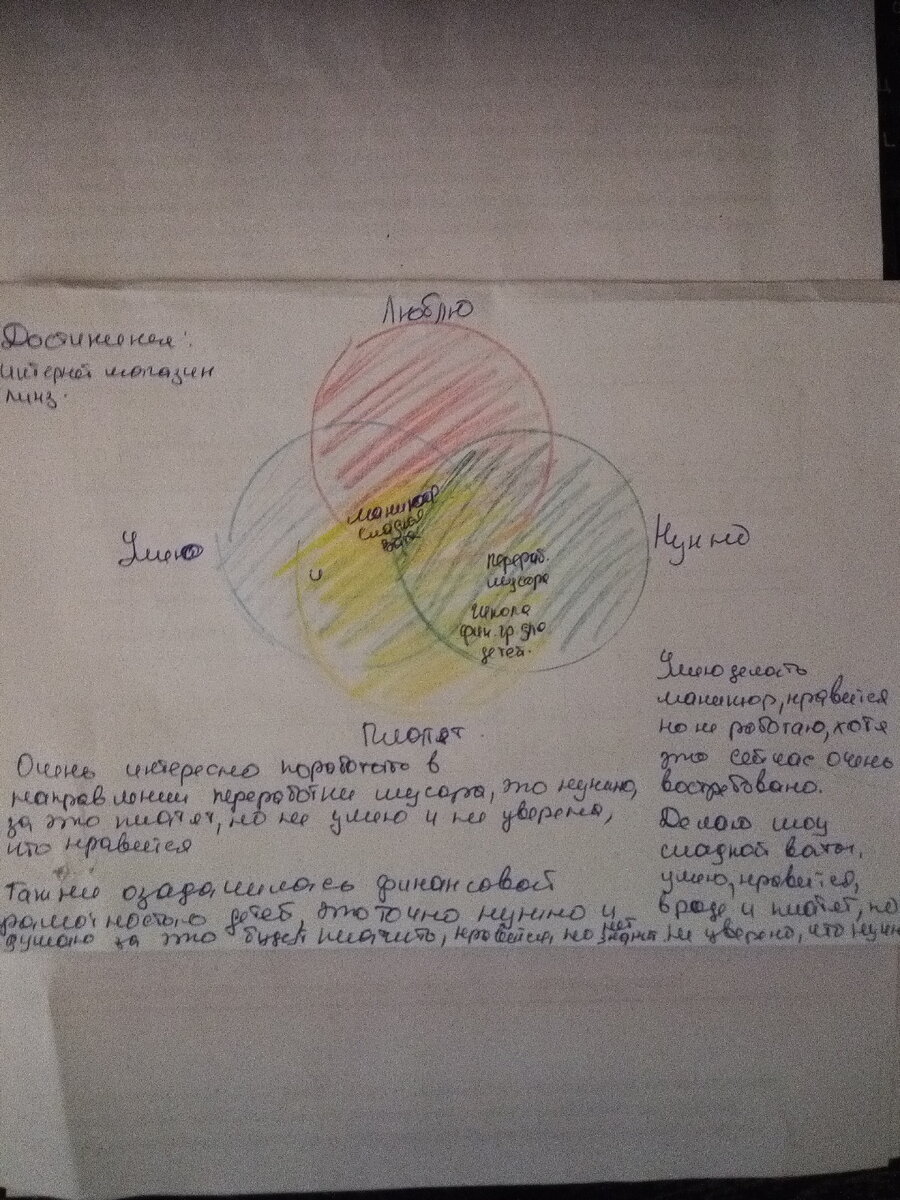 Люблю
Достижения:
интернет магазин
линз.
Умею
Нужно
маникюр
сладкая
вата
и
перераб.
мусора
школа
фин. гр для
детей.
Платят.
Очень интересно поработать в
направлении переработки мусора, это нужно,
за это платят, но не умею и не уверена,
что нравится
Также озадачилась финансовой
грамотностью детей, это точно нужно и
думаю за это будут платить, нравится, но нет
Умею делать
маникюр, нравится
но не работаю, хотя
это сейчас очень
востребовано.
Делаю шоу
сладкой ваты,
умею, нравится,
вроде и платят, но
не уверена, что нужн